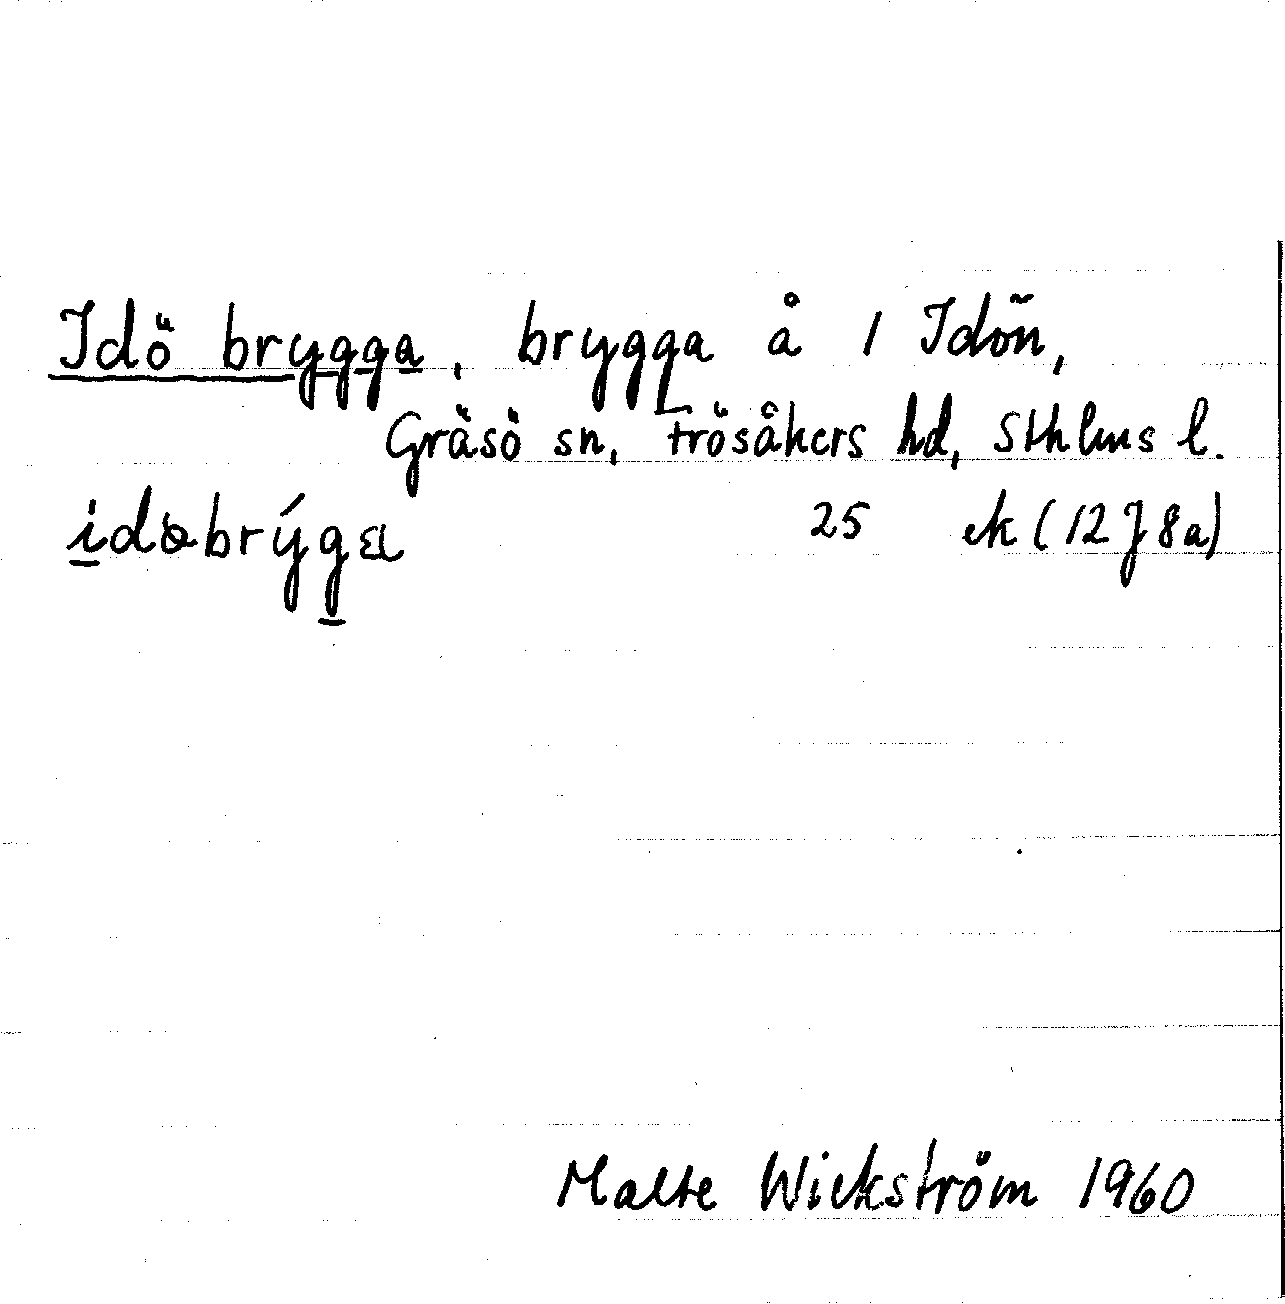 Idö brygga, brygga å 1 Idön,
Gräsö sn, Frösåkers hd, Sthlms l.
idɷbrýga
25 ek (12 J 8a)
Malte Wickström 1960